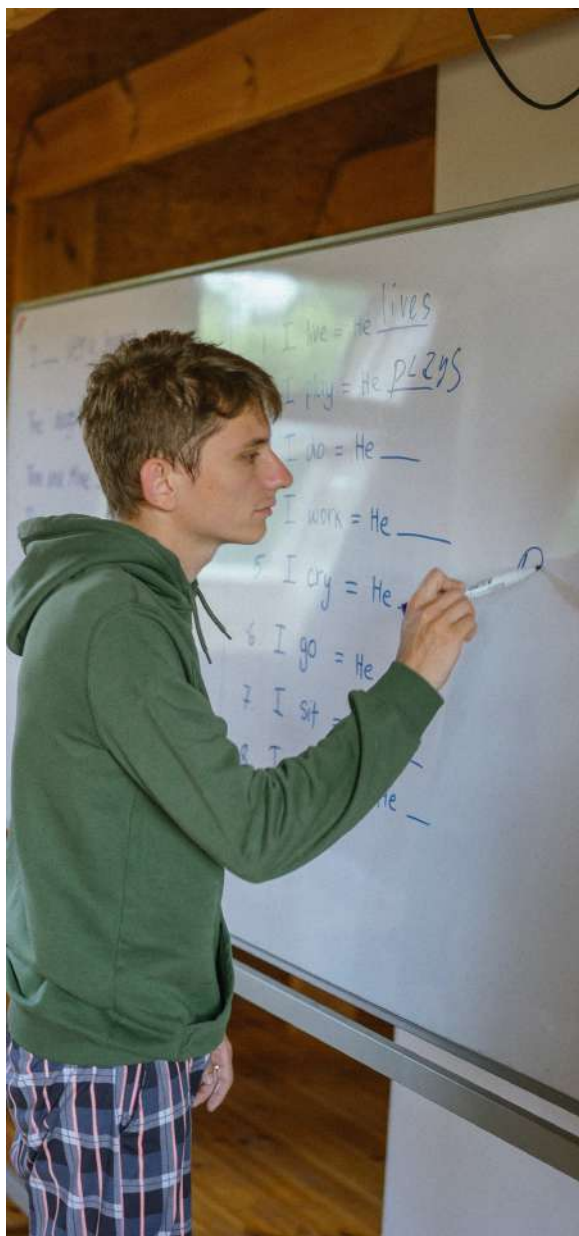 I
The
Tom and
I live = He lives
I play = He plays
I do = He ___
I work = He ___
5. I cry = He
6 I go = He
7. I sit =
8. I
He __